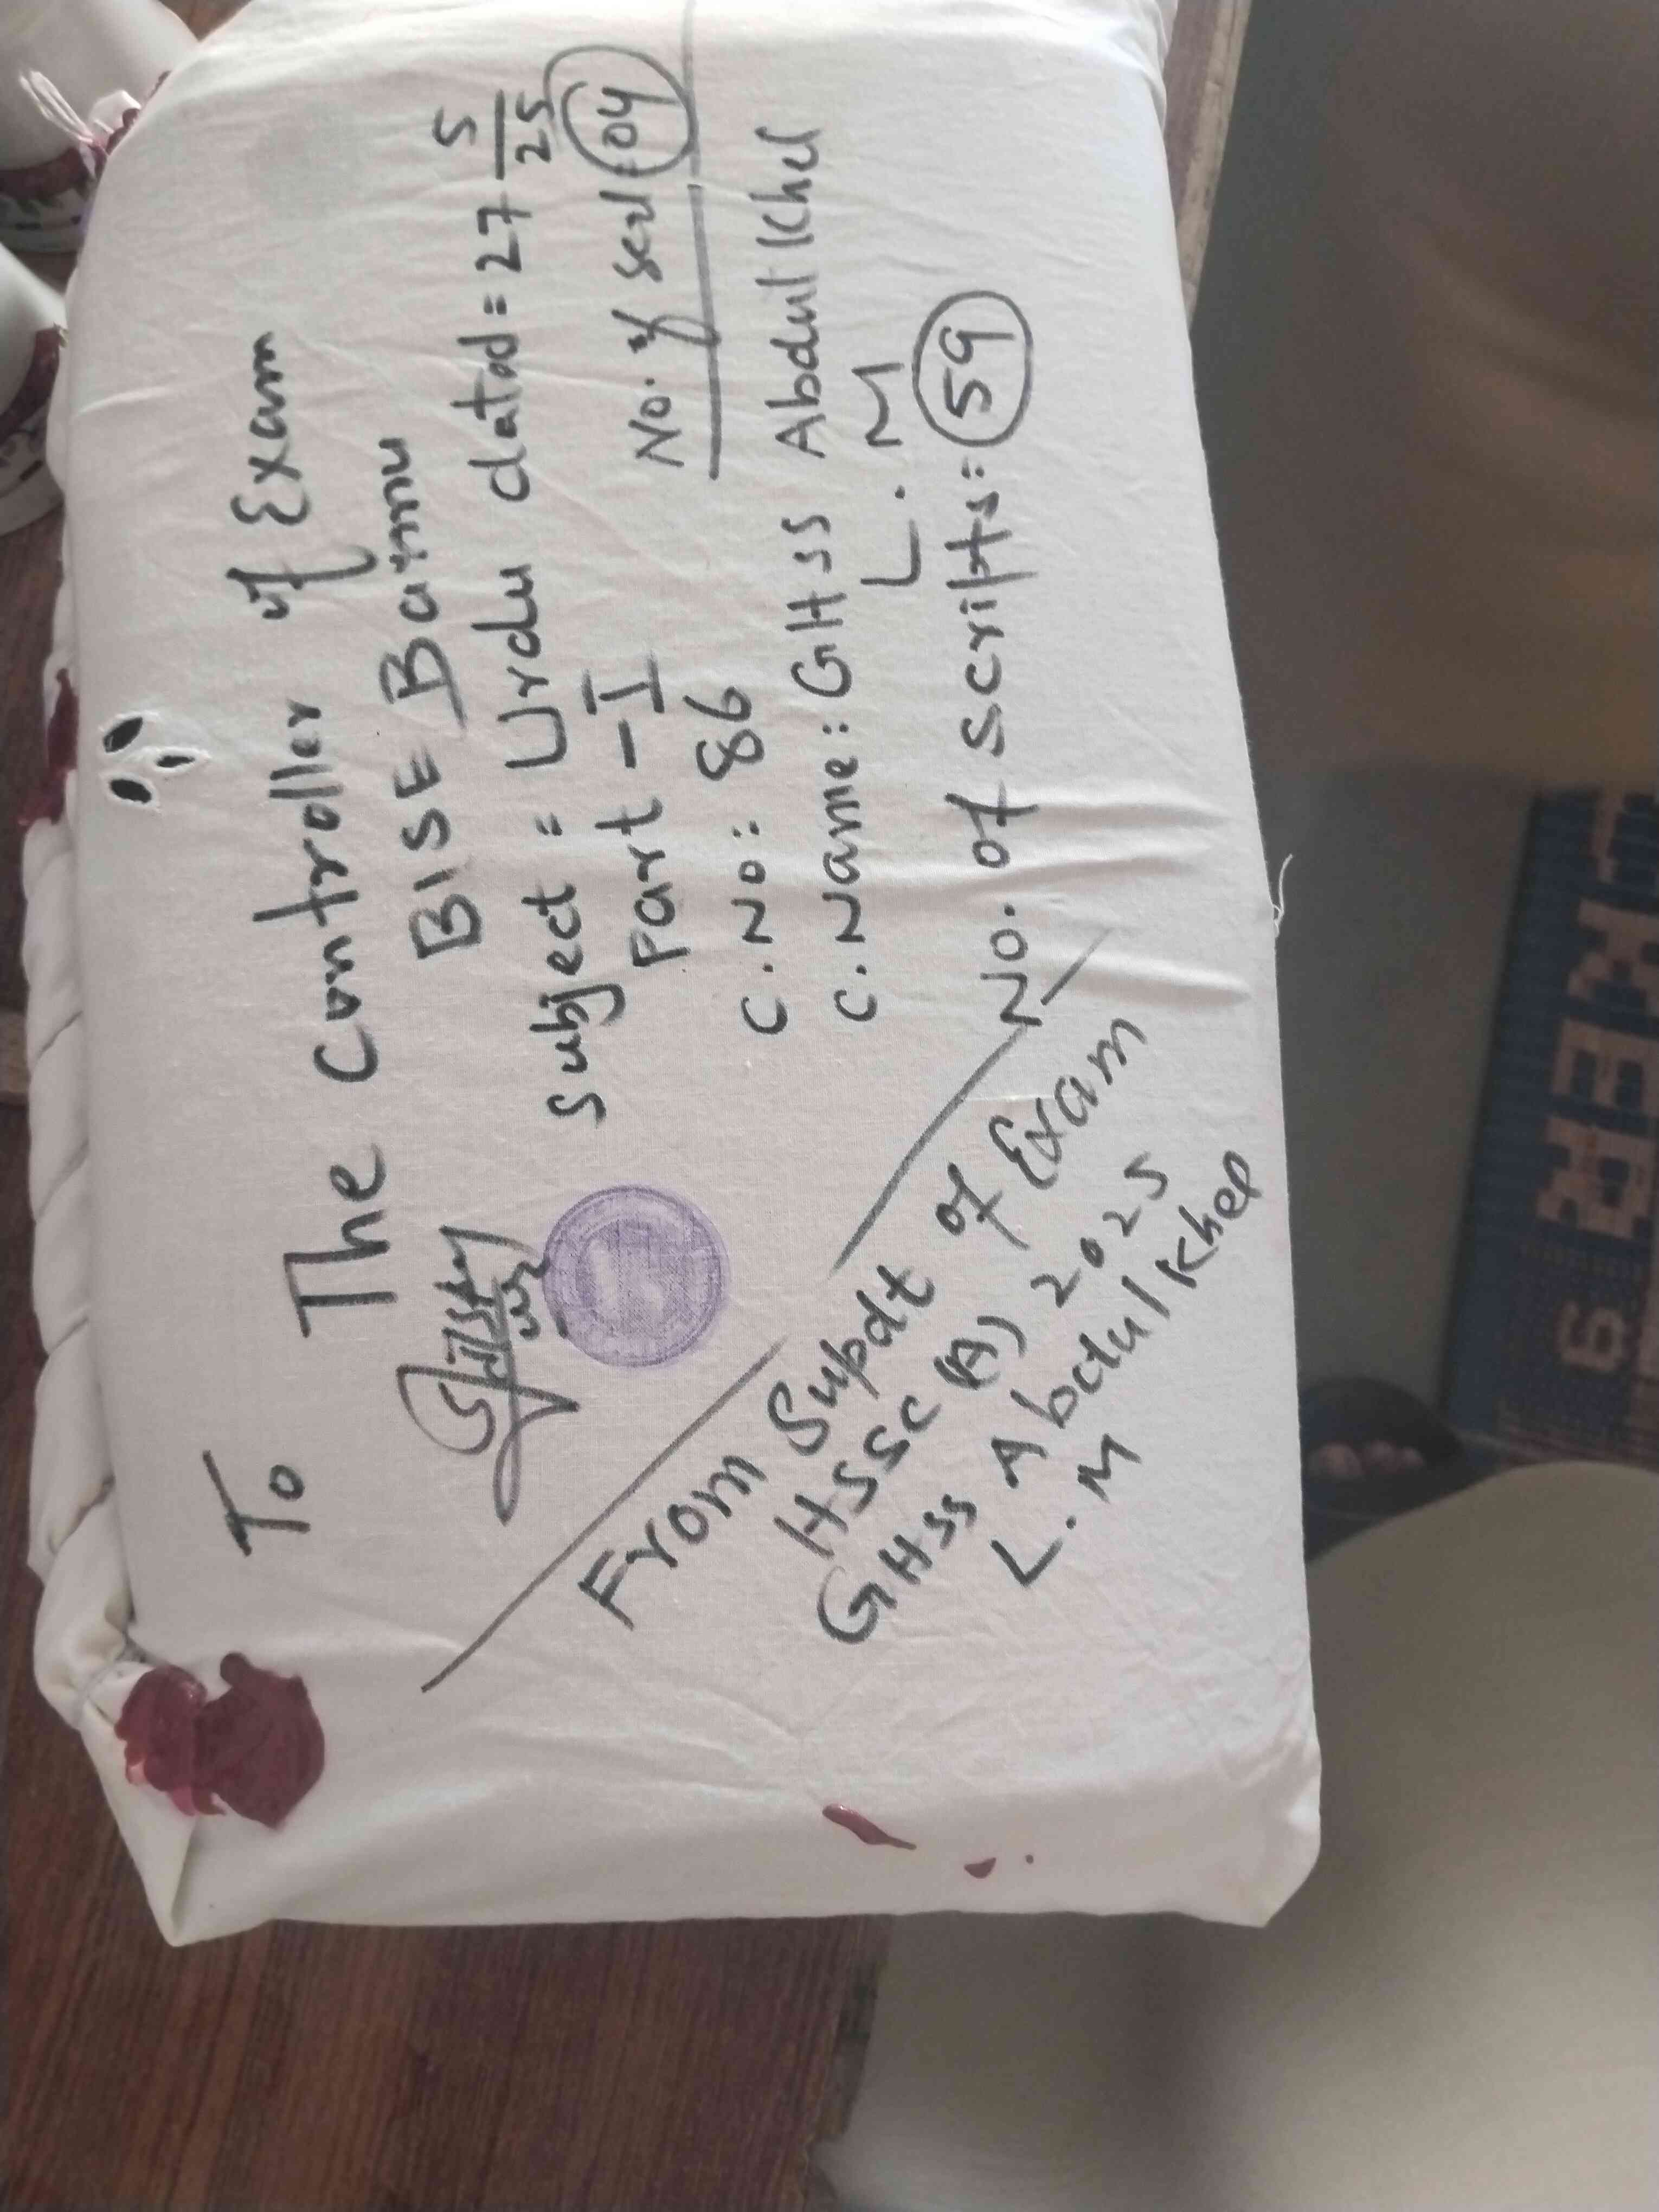 To
The Controller of Exam
BISE Bannu
subject = Urdu dated = 27 5/25
Part - I
No. of seal = 04
C. No: 86
C. Name: GHSS Abdul Khel
L. M
No. of scripts = 59
From Supdt of Exam
HSSC (A) 2025
GHSS Abdul Khel
L. M